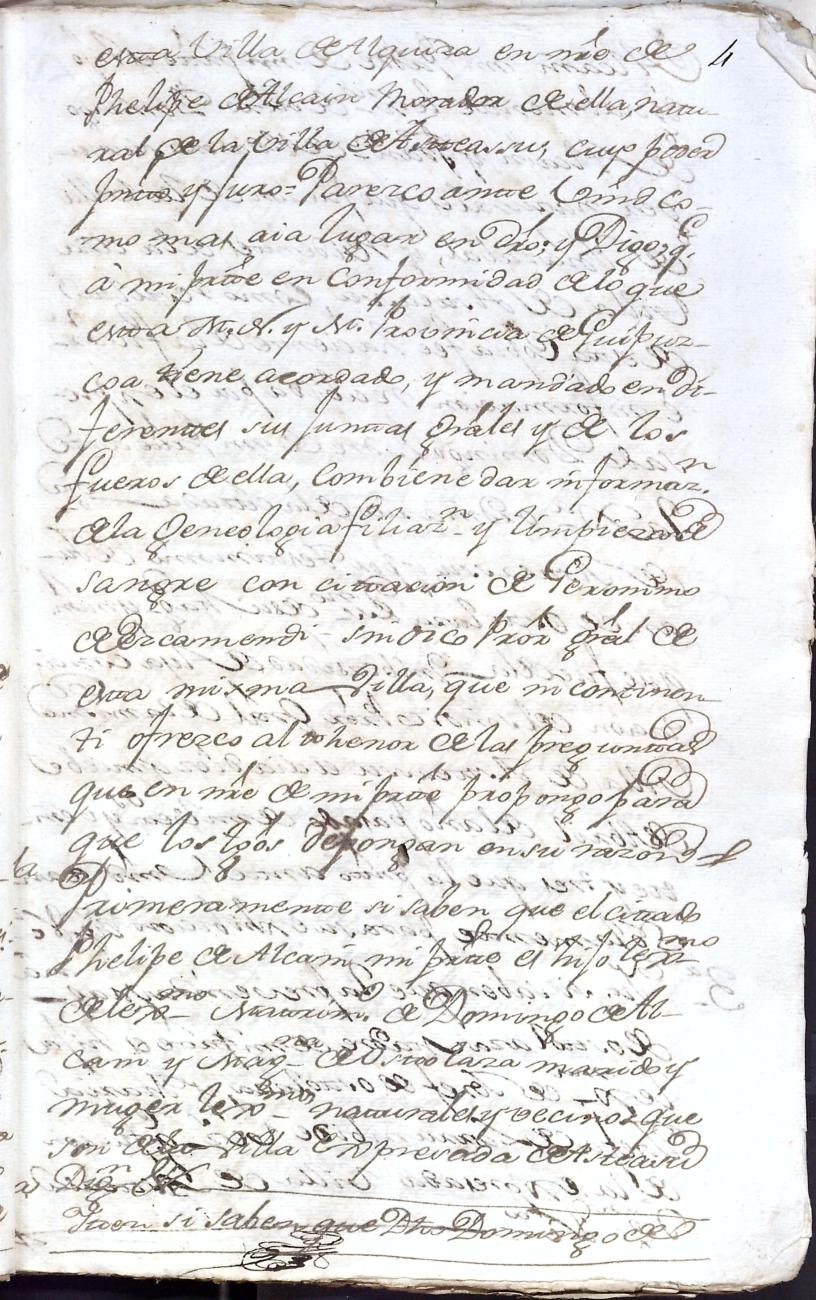 4
esta Villa de Alquiza en nre de
Phelipe de Alcain Morador de ella, natu-
ral de la Villa de Asteassu, cuyo poder
pnto y Juro= Parezco ante Vmd co-
mo mas aia lugar en dro; y Digo; q.e
à mi pte en Conformidad de lo que
esta M. N. y M. L. Provincia de Guipuz-
coa tiene acordado, y mandado en di-
ferentes sus Juntas Grâles y de los
fueros de ella, Combiene dar informaz.n
de la Geneologia filiaz.n y limpieza de
sangre con cittacion de Geronimo
de Ercamendi Sindico Prôr grâl de
esta misma Villa, que in continen-
ti ofrezco al thenor de las preguntas
que en nre de mi pte propongo para
que los tgôs depongan en su razon
Primeramente si saben que el cittado
Phelipe de Alcain mi pte es hijo lexmo
de lexmo Matrim. de Domingo de Al-
cain y Mag.na de marido y
muger lexmos naturales y vecinos que
son de la Villa Expresada de Asteasu
Digan
Itten si saben que Dho Domingo de